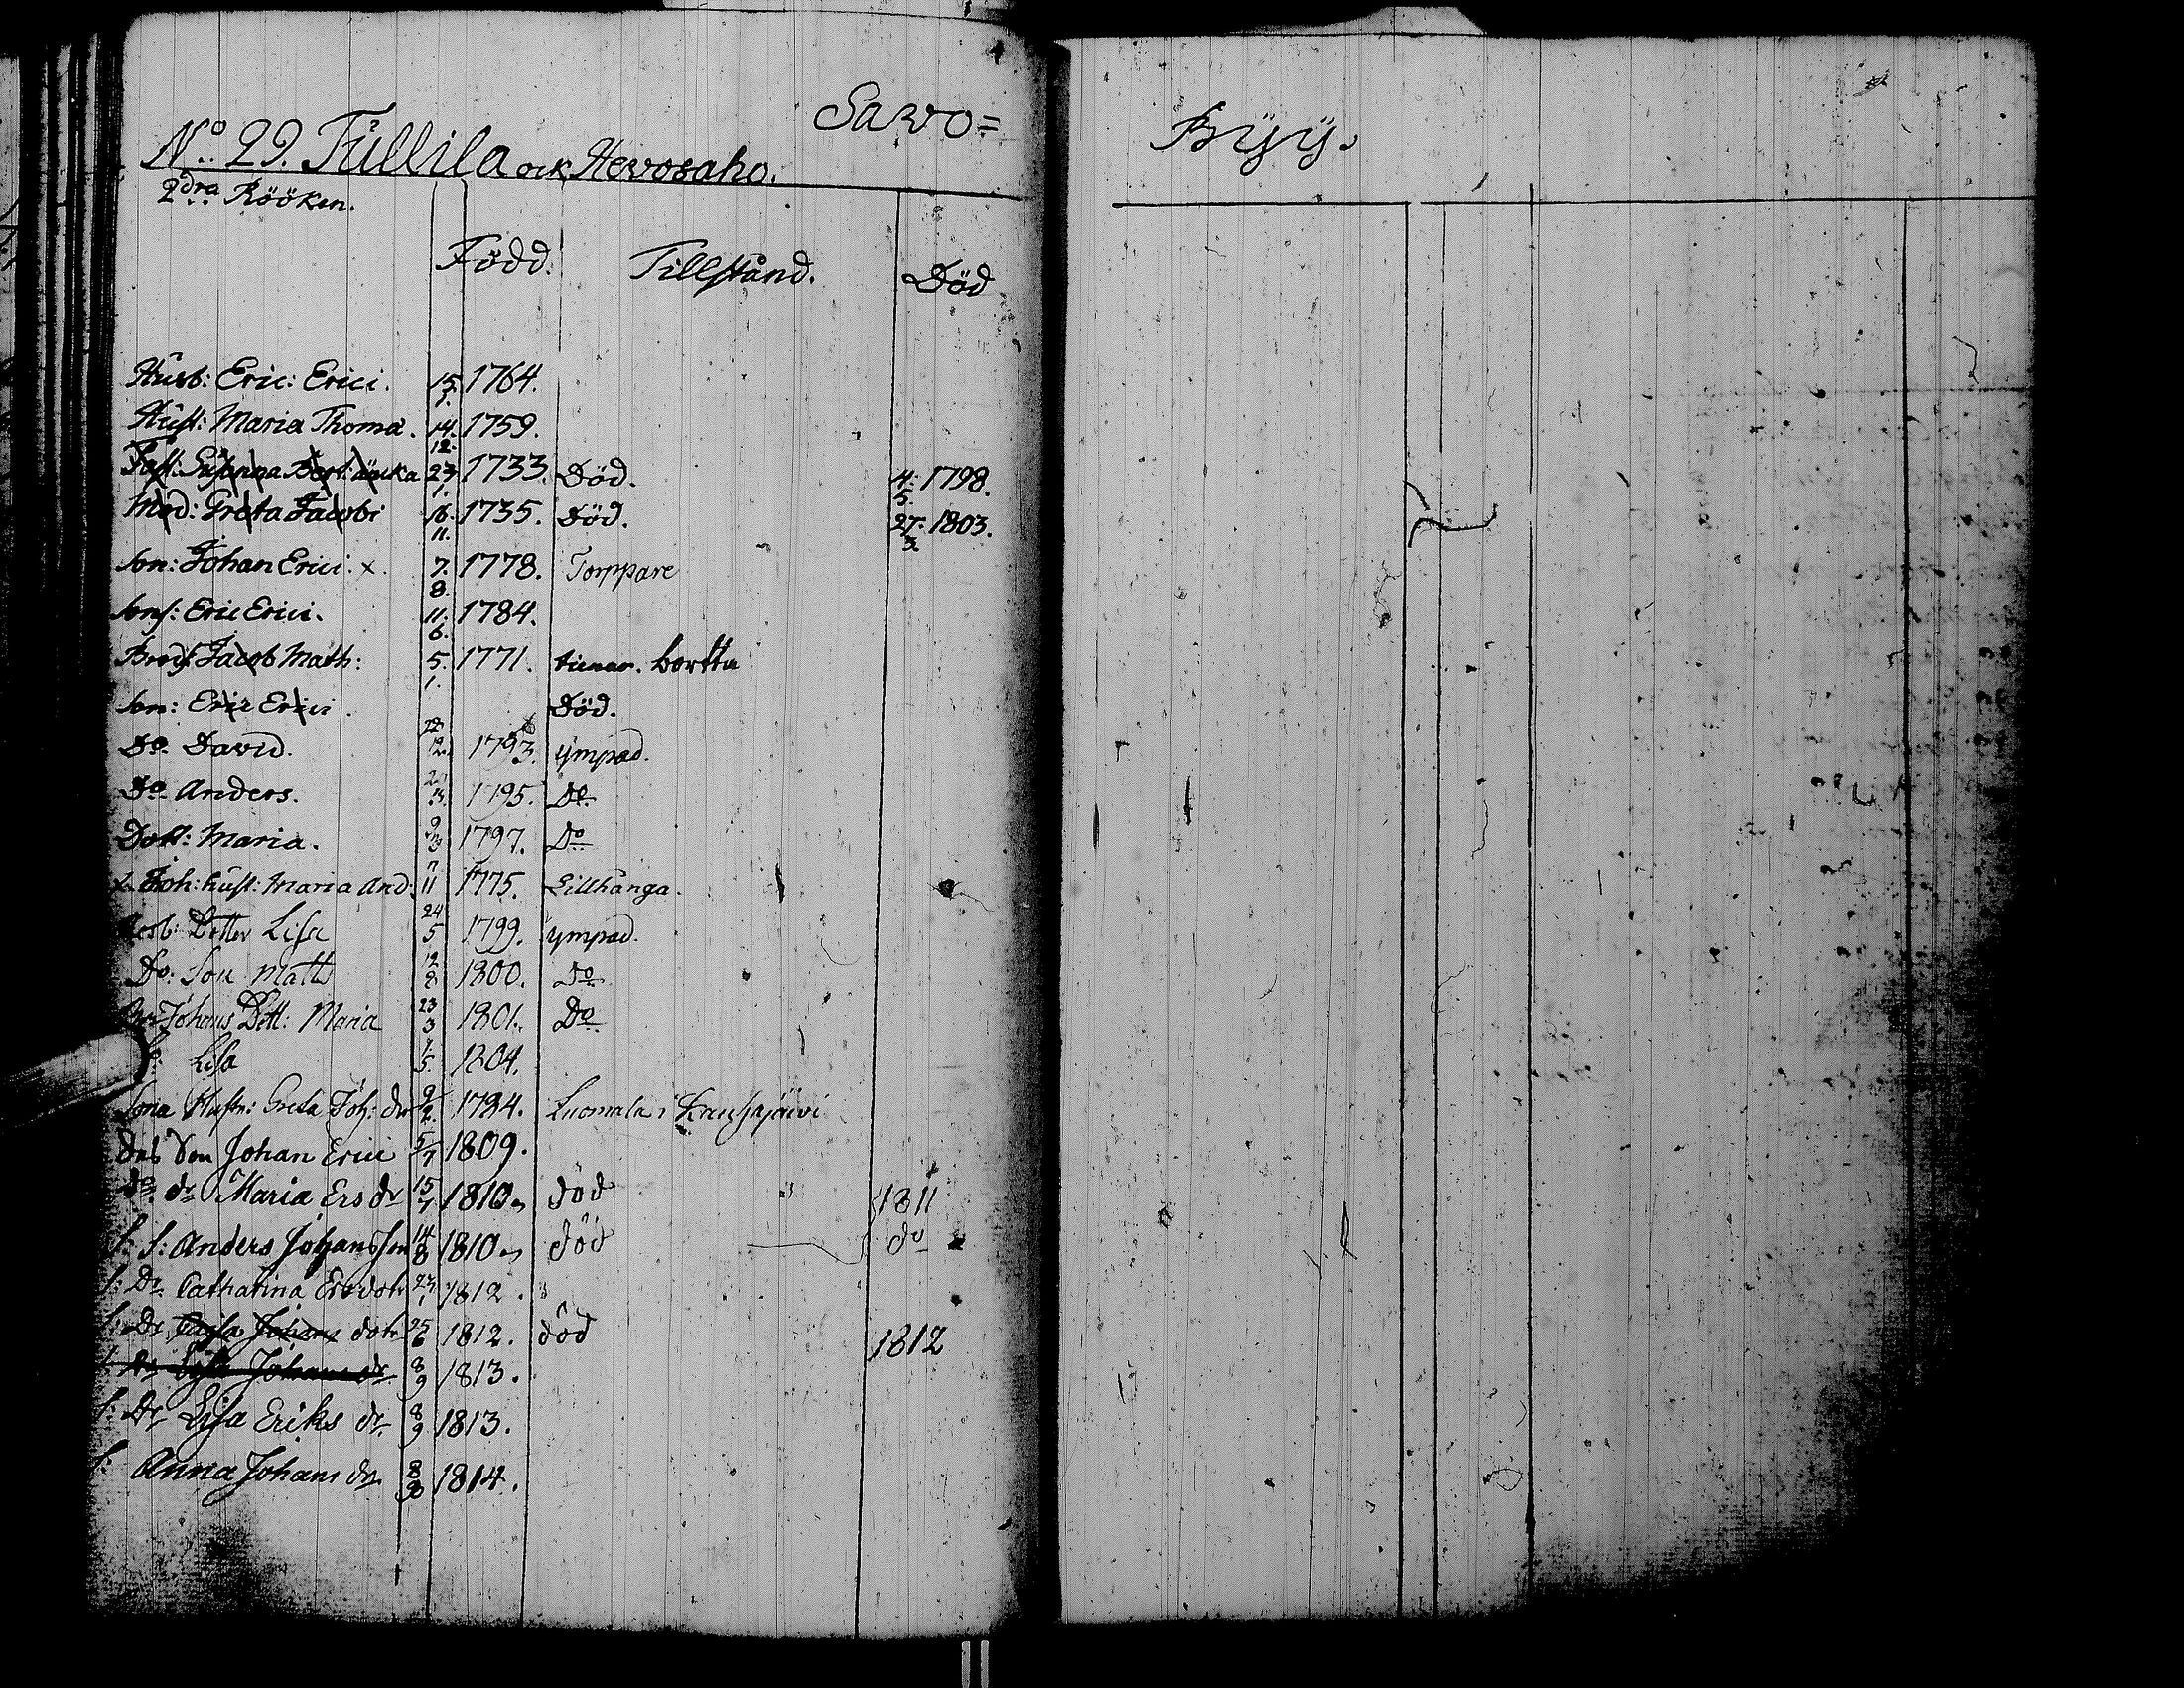 Sawo=
Byy.
No. 29. Tullila ock Hevosaho.
2dra Rööken.
Född. Tillstånd. Död
Husb: Eric: Erici. 15. 1. 1764.
Hust: Maria Thoma. 14. 12. 1759.
Susanna änka 23. 1. 1733. Död. 4. 5. 1798.
Mod: Greta Jacobi 16. 11. 1735. Död. 27. 3. 1803.
Son: Johan Erici. x. 7. 8. 1778. Torppare
Sons: Eric Erici. 11. 6. 1784.
Jacob Math: 5. 1. 1771. bortta
Son: Eric Erici. Död.
Do David. 12. 1793. ympad.
Do Anders. 1795. Do
Dott: Maria. 9 3 1797. Do
x Joh: hust: Maria And: 7 11 1775. Lillhånga.
Dotter Lisa 24 5 1799. ympad.
Do: Son Matts 12 8 1800. Do
Johans Dott: Maria 23 3 1801. Do
Lisa 1 5. 1804.
Sona Hustr: Greta Joh: dr 9 2. 1784. Luomala i Kauhajärvi
Das Son Johan Erici 5 7 1809.
do dr Maria Ers dr 15 7 1810. död 1811
S: S: Anders Johansson 14 8 1810. död do
S: Dr Catharina Ersdotr 23 1 1812.
S: Dr Caisa Johans dotr 25 6 1812. död 1812
S: Dr Lisa Johans dr 8 9 1813.
S: Dr Lisa Eriks dr 8 9 1813.
S: Anna Johans dr 8 1814.